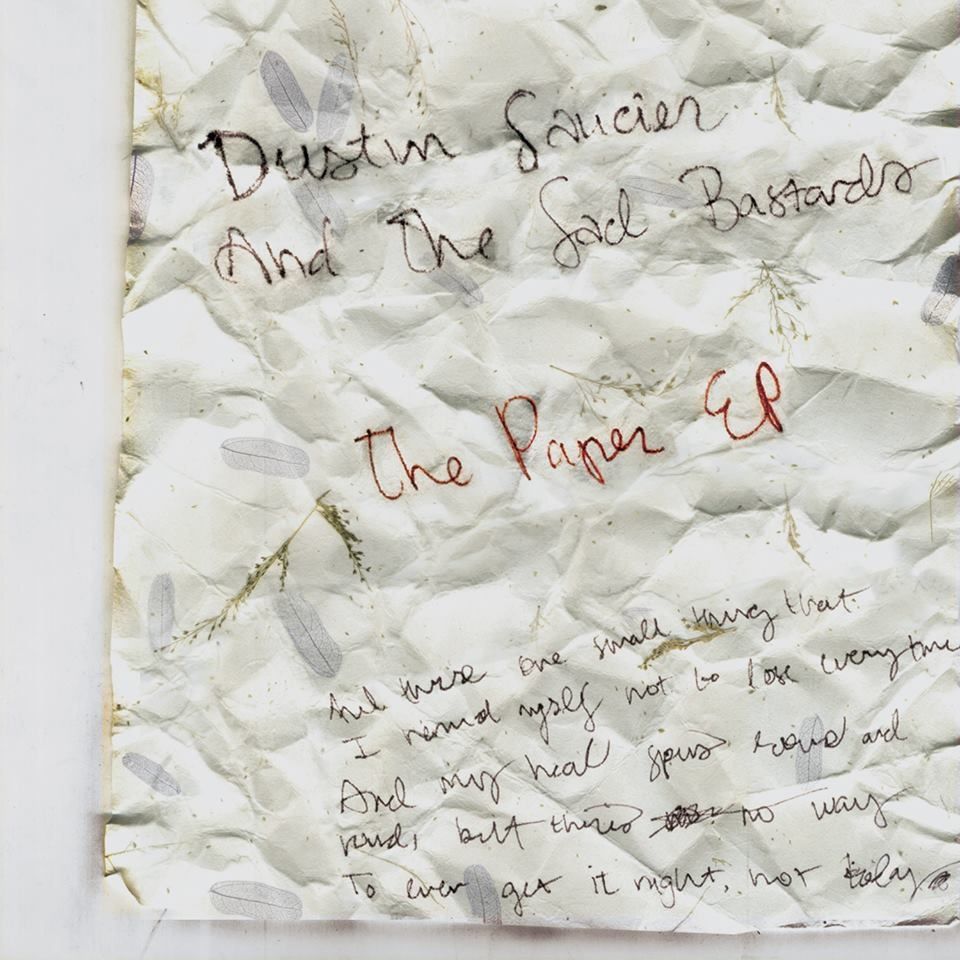 Dustin Saucier
And The Sad Bastards
The Paper EP
And theres one small thing that
I remind myself not to lose everytime
And my head spins round and
round, but theres no way
To ever get it right, not today